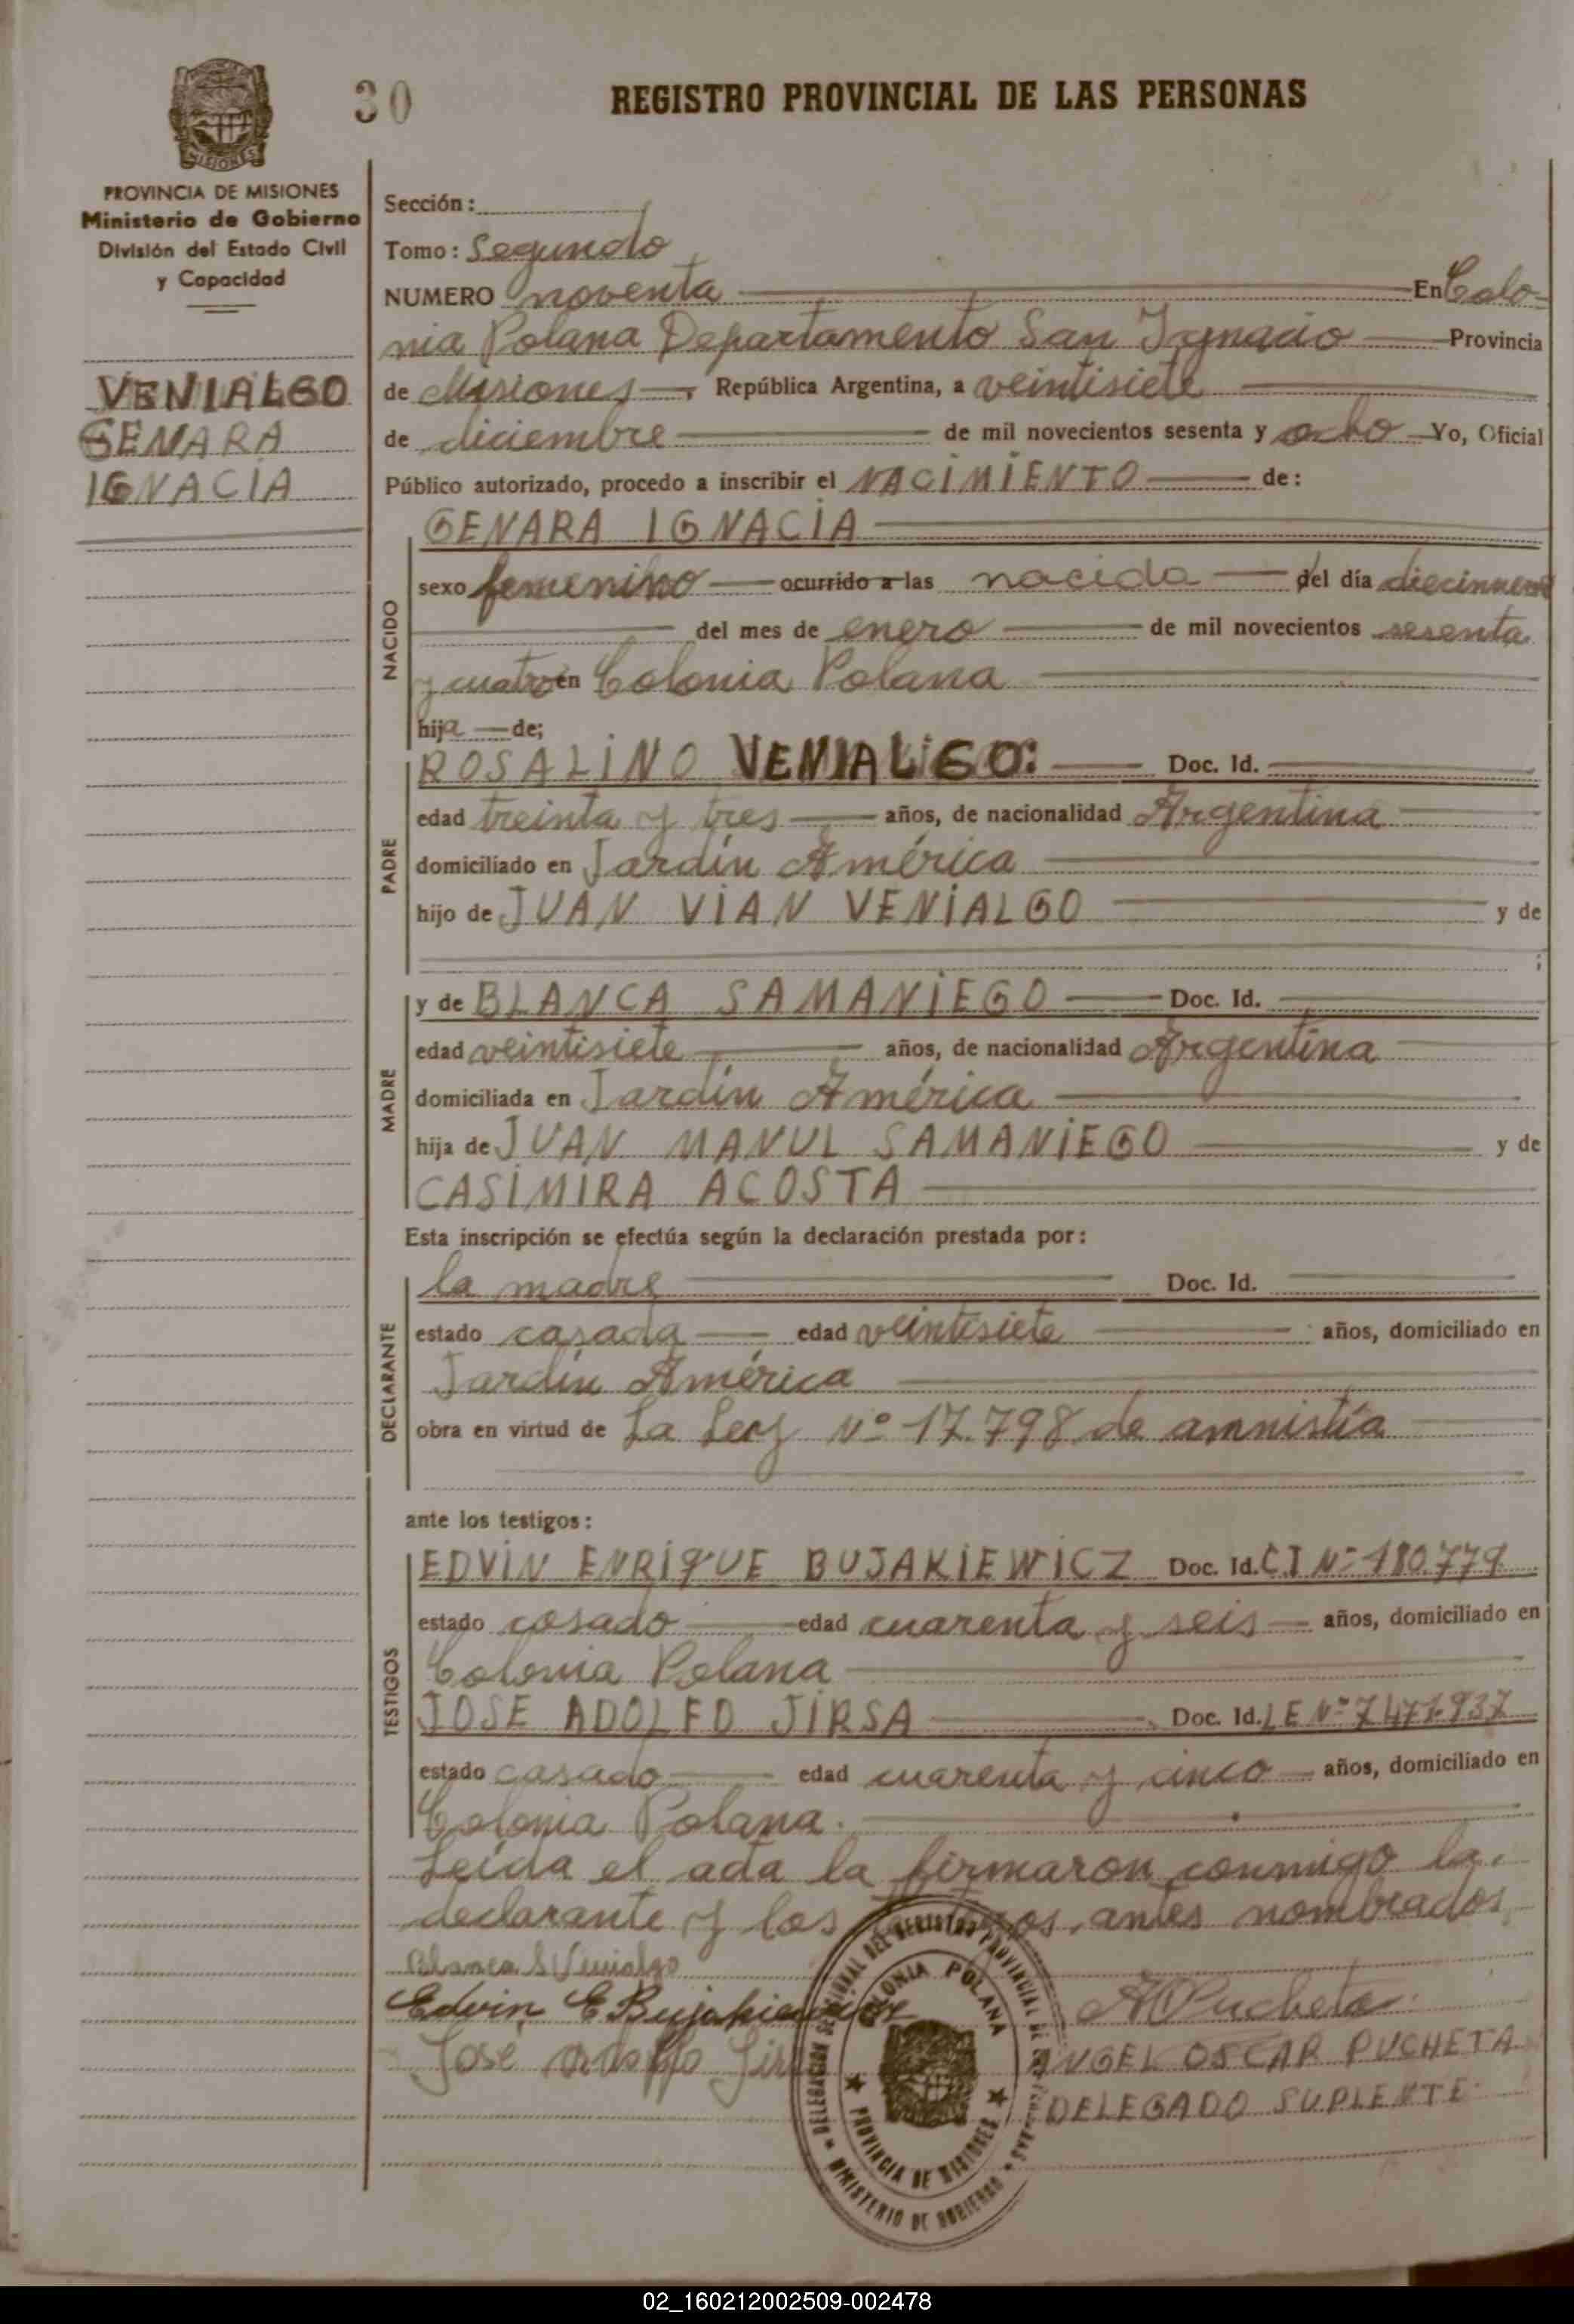 30
REGISTRO PROVINCIAL DE LAS PERSONAS
MISIONES
PROVINCIA DE MISIONES
Ministerio de Gobierno
División del Estado Civil
y Capacidad
VENIALGO
GENARA
IGNACIA
Sección:
Tomo: Segundo
NUMERO noventa En Colo-
nia Polana Departamento San Ignacio Provincia
de Misiones República Argentina, a veintisiete
de diciembre de mil novecientos sesenta y ocho Yo, Oficial
Público autorizado, procedo a inscribir el NACIMIENTO de:
NACIDO
GENARA IGNACIA
sexo femenino ocurrido a las nacida del día diecinueve
del mes de enero de mil novecientos sesenta
y cuatro en Colonia Polana
hija de;
PADRE
ROSALINO VENIALGO: Doc. Id.
edad treinta y tres años, de nacionalidad Argentina
domiciliado en Jardín América
hijo de JUAN VIAN VENIALGO y de
;
MADRE
y de BLANCA SAMANIEGO Doc. Id.
edad veintisiete años, de nacionalidad Argentina
domiciliada en Jardín América
hija de JUAN MANUL SAMANIEGO y de
CASIMIRA ACOSTA
Esta inscripción se efectúa según la declaración prestada por:
DECLARANTE
la madre Doc. Id.
estado casada edad veintisiete años, domiciliado en
Jardín América
obra en virtud de La Ley Nº 17.798 de amnistía
ante los testigos:
TESTIGOS
EDVIN ENRIQUE BUJAKIEWICZ Doc. Id. C.I Nº 180.779
estado casado edad cuarenta y seis años, domiciliado en
Colonia Polana
JOSE ADOLFO JIRSA Doc. Id. LE Nº 7.471.937
estado casado edad cuarenta y cinco años, domiciliado en
Colonia Polana.
Leída el acta la firmaron conmigo la
declarante y los testigos antes nombrados
Blanca S Venialgo
Edvin E Bujakiewicz
José Adolfo Jirsa
A Pucheta
ANGEL OSCAR PUCHETA
DELEGADO SUPLENTE
DELEGACION SECCIONAL DEL REGISTRO PROVINCIAL DE LAS PERSONAS
COLONIA POLANA
PROVINCIA DE MISIONES
MINISTERIO DE GOBIERNO
02_160212002509-002478